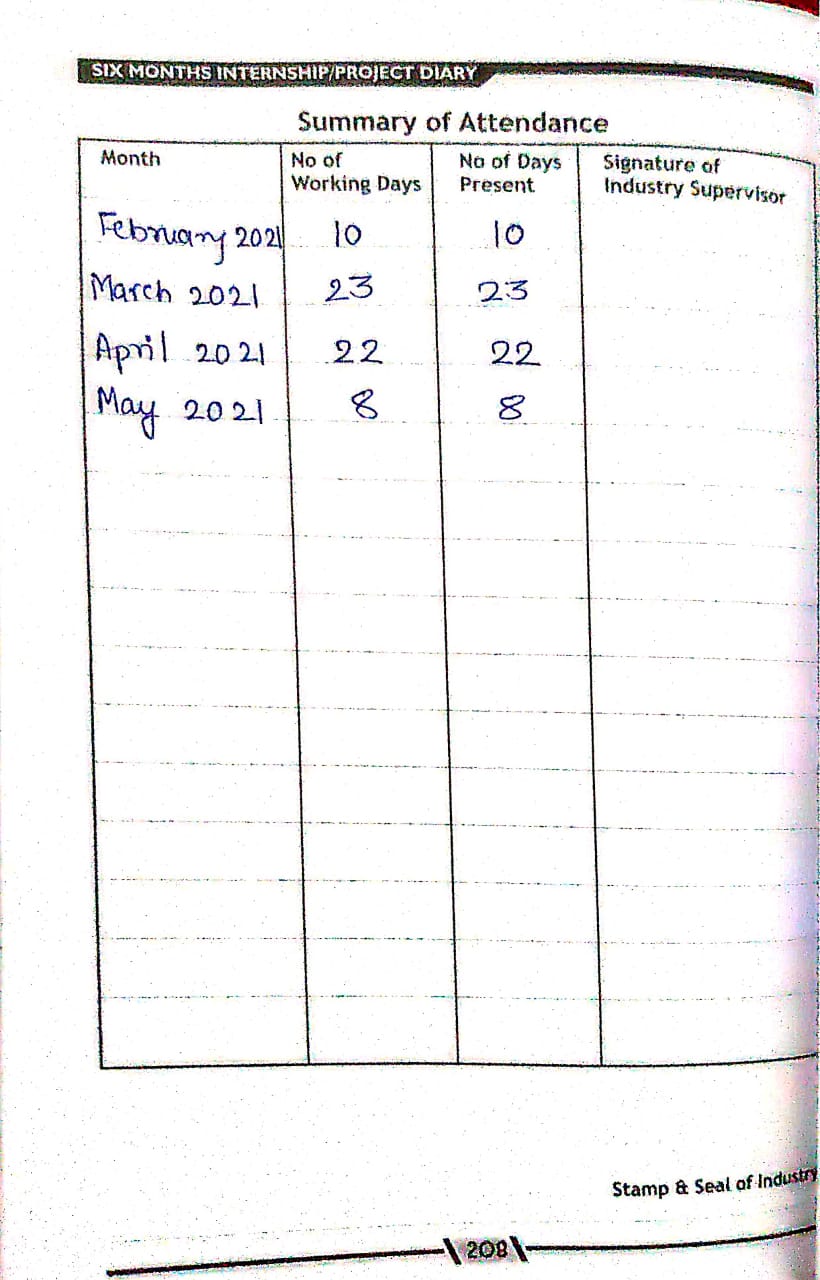 SIX MONTHS INTERNSHIP/PROJECT DIARY
Summary of Attendance
Month No of Working Days No of Days Present Signature of Industry Supervisor
February 2021 10 10
March 2021 23 23
April 2021 22 22
May 2021 8 8
Stamp & Seal of Industry
208